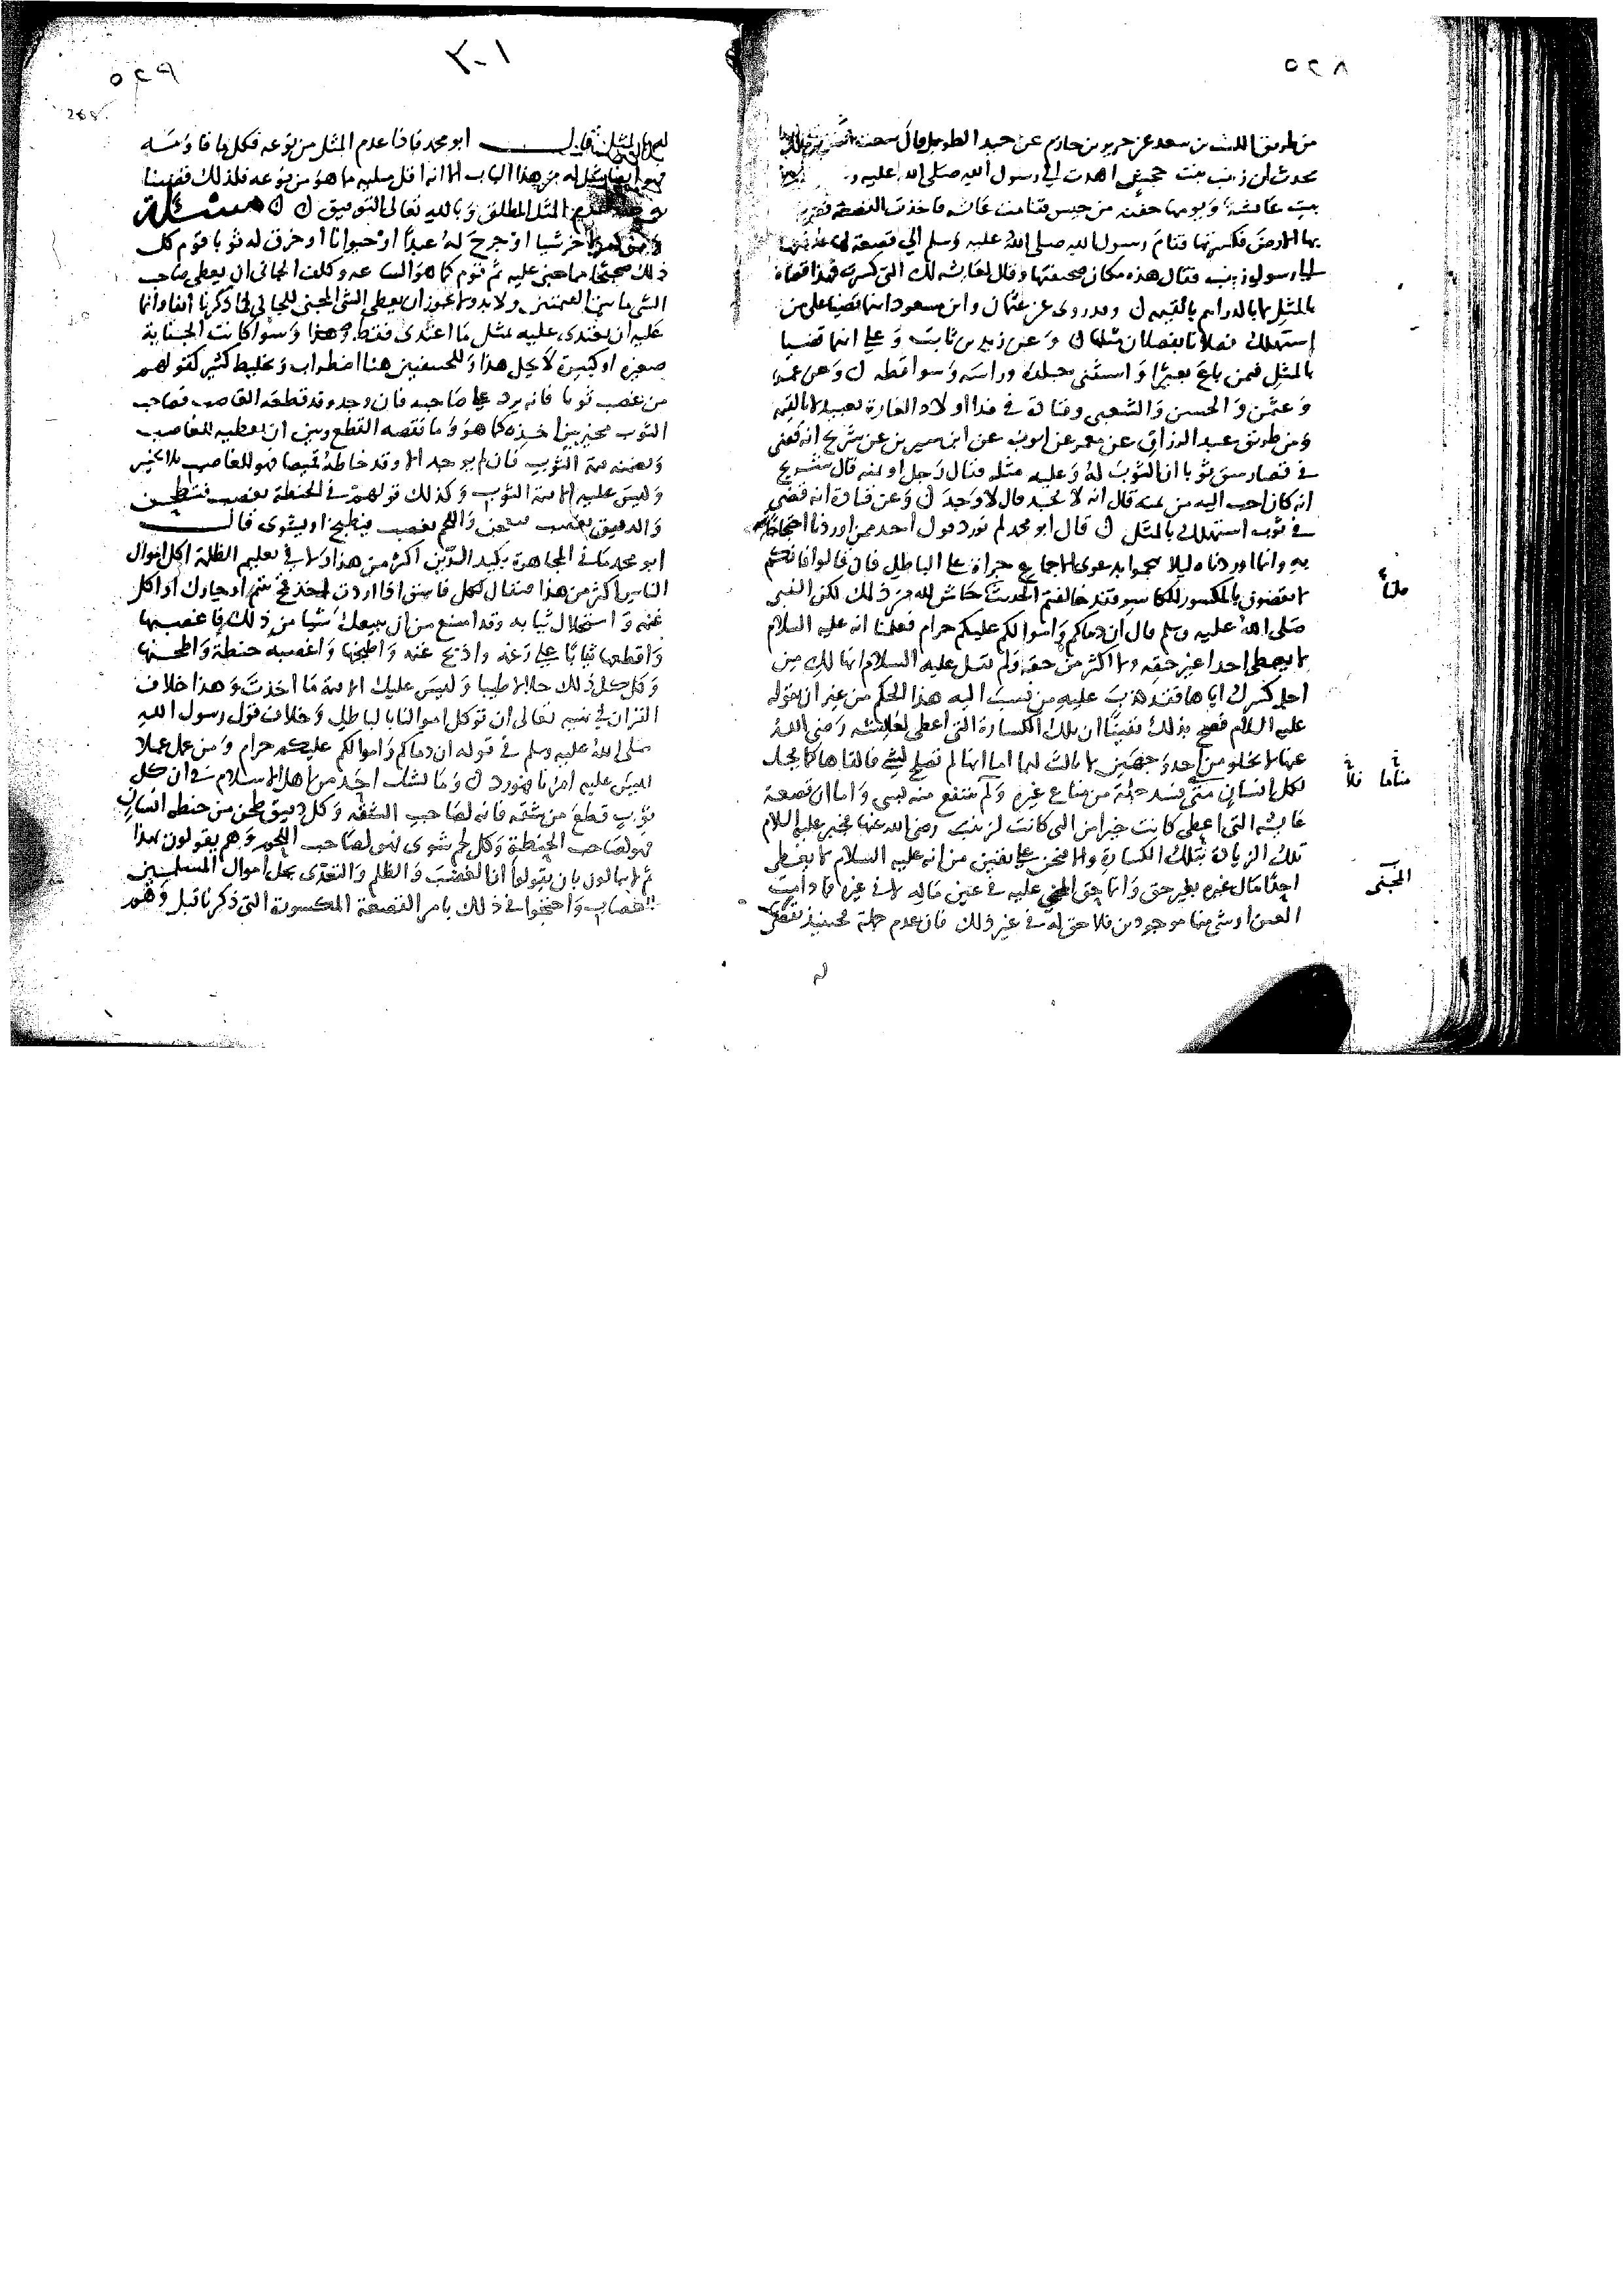 ٥٢٨
من طريق الليث بن سعد عن جرير بن حازم عن حميد الطويل قال سمعت انس بن مالك
يحدث ان زينب بنت جحش اهدت الى رسول الله صلى الله عليه و
بيت عائشة ويومها جفنه من حيس فقامت عائشه فاخذت القصعة فضربت
بها الارض فكسرتها فقام رسول الله صلى الله عليه وسلم الى قصعة لها فدفعها
الى رسول زينب فقال هذه مكان صحفتها وقال لعائشه لك التي كسرت فهذا قضاء
بالمثل لا بالدراهم بالقيمه وقد روى عن عثمان وابن مسعود انهما قضيا على من
استهلك فصلانا بفصلان مثلها وعن زيد بن ثابت وعلي انهما قضيا
بالمثل فمن باع بعيرا واستثنى جلده وراسه وسواقطه وعن عمر
وعثمن والحسن والشعبي وقتادة في فداء اولاد الغارة بعبيد لا بالقيمة
ومن طريق عبد الرزاق عن معمر عن ايوب عن ابن سيرين عن شريح انه قضى
في قصار شق ثوبا ان الثوب له وعليه مثله فقال رجل او ثمنه قال شريح
انه كان احب اليه من ثمنه قال انه لا يجد قال لا وجد وعن قتادة انه قضى
في ثوب استهلك بالمثل قال ابو محمد لم نورد قول احد ممن اوردنا احتجاجا
به وانما اوردناه ليلا يهجموا بدعوى الاجماع جراة على الباطل فان قالوا فانكم
لا تقضون بالمكسور للكاسر فقد خالفتم الحديث حاش لله من ذلك لكن النبي
صلى الله عليه وسلم قال ان دماكم واموالكم عليكم حرام فعلمنا انه عليه السلام
لا يعطي احدا غير حقه ولا اكثر من حقه ولم يقل عليه السلام انها لك من
اجل كسرك اياها فقد كذب عليه من نسب اليه هذا الحكم من غير ان يقوله
عليه السلام فصح بذلك يقينا ان تلك الكسارة التي اعطى لعائشه رضي الله
عنها لا تخلو من احد وجهين لا ثالث لهما اما انها لم تصلح لشي فالقاها كما يحل
لكل انسان متى يسد حلمة من متاع غيره ولم ينتفع منه بشي واما ان قصعة
عايشه التي اعطى كانت خيرا من التي كانت لزينب رضي الله عنها فجبر عليه السلام
تلك الزيادة بتلك الكسارة والا فنحن على يقين من انه عليه السلام لا يعطي
احدا مال غيره بغير حق وانما حق المجني عليه في عين ماله لا في غيره فما دامت
العين او شي منها موجودين فلا حق له في غير ذلك فان عدم جملة فحينيذ نقضي
له
المجني
٥٢٩
٢٠١
268
ابو محمد فاذا عدم المثل من نوعه فكل ما قاومه
فهو ايضا مثل له من هذا الباب الا انه اقل مثليه مما هو من نوعه فلذلك قضينا
المثل المطلق وبالله تعالى التوفيق مسئلة
ومن كسر لاخر شيا او جرح له عبدا او حيوانا او خرق له ثوبا قوم كل
ذلك صحيحا مما جنى عليه ثم قوم كما هو الساعه وكلف الجاني ان يعطي صاحب
الشي ما بين القيمتين ولا بد ولا يجوز ان يعطى الشي المجني للجاني لما ذكرنا انفا وانما
عليه ان يعتدى عليه بمثل ما اعتدى فقط وهذا وسوا كانت الجناية
صغيرة او كبيرة لا يحل هذا وللحنفيين هنا اضطراب وتخليط كثير كقولهم
من غصب ثوبا فانه يرد على صاحبه فان وجد وقد قطعه الغاصب فصاحب
الثوب مخير بين اخذه كما هو وما نقصه القطع وبين ان يعطيه للغاصب
ويضمنه قيمة الثوب فان لم يوجد الا وقد خاطه قميصا فهو للغاصب بلا تخيير
وليس عليه الا قيمة الثوب وكذلك قولهم في الحنطة تغصب فتطحن
والدقيق يغصب فيعجن واللحم يغصب فيطبخ او يشوى قال
ابو محمد ما في المجاهرة بكيد الدين اكثر من هذا ولا في تعليم الظلمة اكل اموال
الناس اكثر من هذا فيقال لكل فاسق اذا اردت اخذ قمح يتيم او جارك او اكل
غنمه واستحلال ثيابه وقد امتنع من ان يبيعك شيا من ذلك فاغصبها
واقطعها ثيابا على رغمه واذبح غنمه واطبخها واغصبه حنطة واطحنها
وكل كل ذلك حلالا طيبا وليس عليك الا قيمة ما اخذت وهذا خلاف
القران في نهيه تعالى ان توكل اموالنا بالباطل وخلاف قول رسول الله
صلى الله عليه وسلم في قوله ان دماكم واموالكم عليكم حرام ومن عمل عملا
ليس عليه امرنا فهو رد وما نشك احد من اهل الاسلام في ان كل
ثوب قطع من شقه فانه لصاحب الشقه وكل دقيق طحن من حنطه انسان
فهو لصاحب الحنطة وكل لحم شوى فهو لصاحب اللحم وهم يقولون بهذا
ثم لا يبالون بان يقولوا ان الغصب والظلم والتعدى يحل اموال المسلمين
للغصاب واحتجوا في ذلك بامر القصعة المكسورة التي ذكرنا قبل وهو